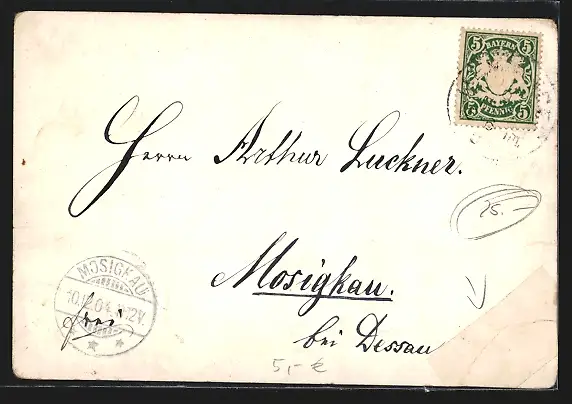 5 BAYERN 5
5 PFENNIG 5
Herrn Arthur Luckner.
25.-
Mosigkau.
bei Dessau
MOSIGKAU
frei
5,- €